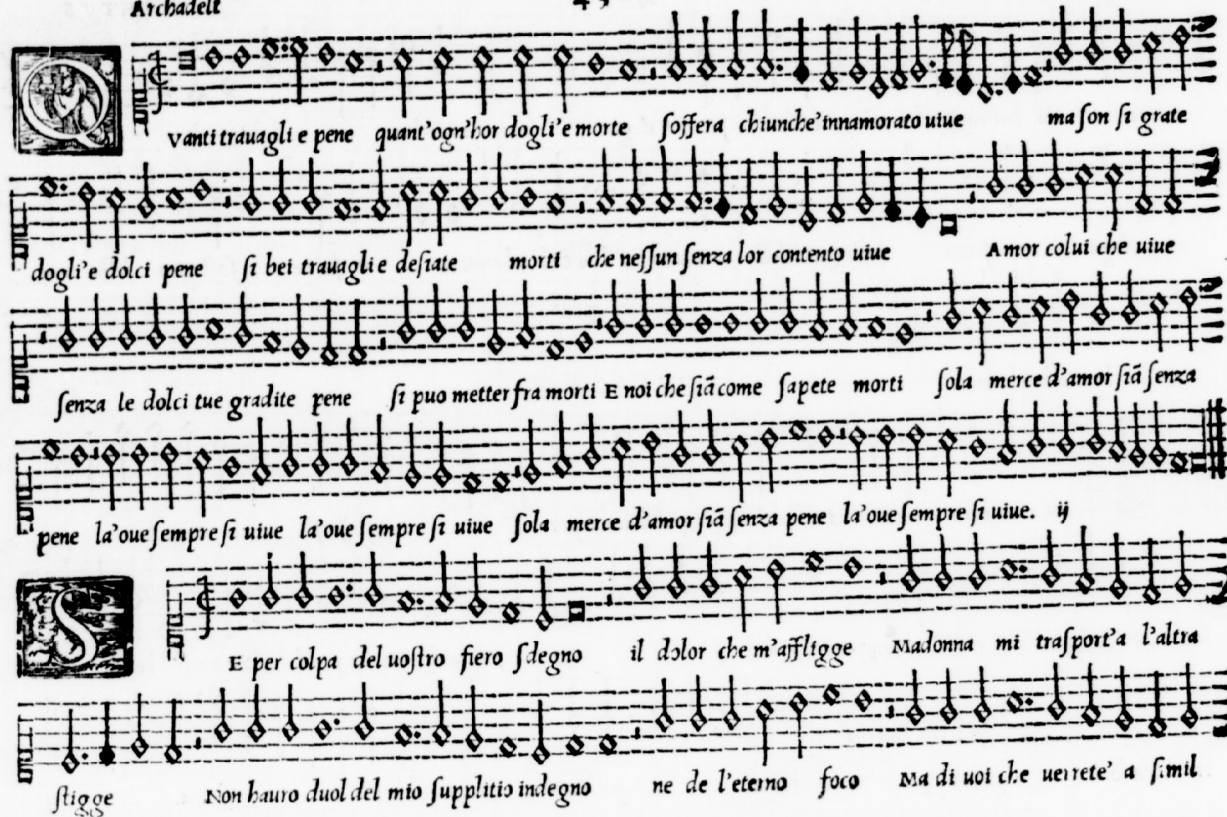 Archadelt
Q Vanti trauagli e pene quant'ogn'hor dogli'e morte ſoffera chiunche'innamorato uiue ma ſon ſi grate
dogli'e dolci pene ſi bei trauagli e deſiate morti che neſſun ſenza lor contento uiue Amor colui che uiue
ſenza le dolci tue gradite pene ſi puo metter fra morti E noi che ſiã come ſapete morti ſola merce d'amor ſiã ſenza
pene la'oue ſempre ſi uiue la'oue ſempre ſi uiue ſola merce d'amor ſiã ſenza pene la'oue ſempre ſi uiue. ij
S E per colpa del uoſtro fiero ſdegno il dolor che m'affligge Madonna mi traſport'a l'altra
ſtigge Non hauro duol del mio ſupplitio indegno ne de l'eterno foco Ma di uoi che uerrete' a ſimil